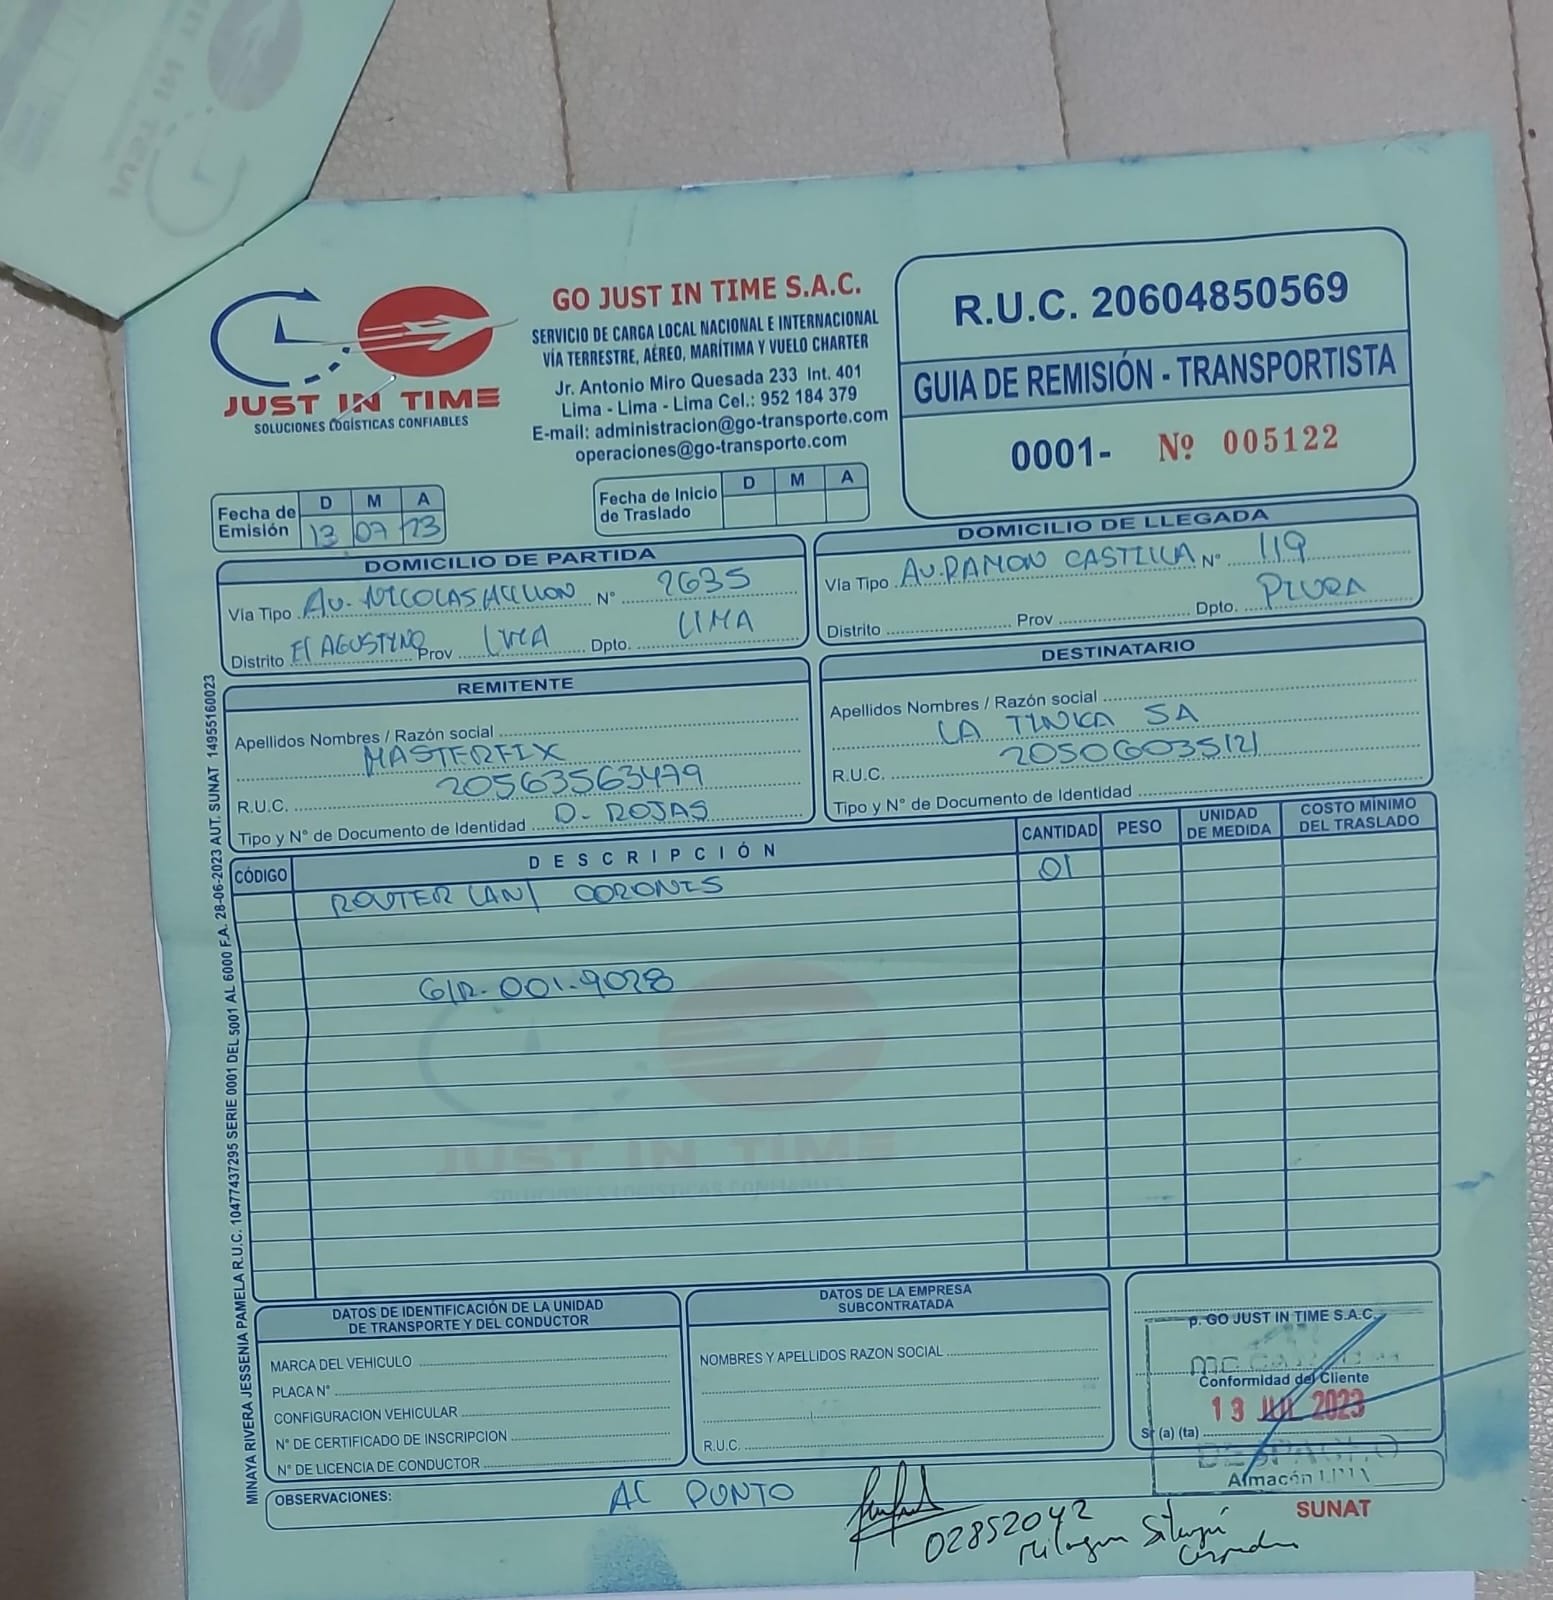 JUST IN TIME
SOLUCIONES LOGÍSTICAS CONFIABLES
GO JUST IN TIME S.A.C.
SERVICIO DE CARGA LOCAL NACIONAL E INTERNACIONAL
VÍA TERRESTRE, AÉREO, MARÍTIMA Y VUELO CHARTER
Jr. Antonio Miro Quesada 233 Int. 401
Lima - Lima - Lima Cel.: 952 184 379
E-mail: administracion@go-transporte.com
operaciones@go-transporte.com
R.U.C. 20604850569
GUIA DE REMISIÓN - TRANSPORTISTA
0001- Nº 005122
Fecha de Emisión D M A
13 07 23
Fecha de Inicio de Traslado D M A
DOMICILIO DE PARTIDA
Vía Tipo AV. NICOLAS N° 2635
Distrito El AGUSTINO Prov LIMA Dpto. LIMA
DOMICILIO DE LLEGADA
Vía Tipo AV. RAMON CASTILLA N° 119
Distrito Prov Dpto. PIURA
REMITENTE
Apellidos Nombres / Razón social
MASTERFIX
R.U.C. 20563563479
Tipo y N° de Documento de Identidad D. ROJAS
DESTINATARIO
Apellidos Nombres / Razón social
LA TINKA SA
R.U.C. 20506035121
Tipo y N° de Documento de Identidad
CÓDIGO DESCRIPCIÓN CANTIDAD PESO UNIDAD DE MEDIDA COSTO MÍNIMO DEL TRASLADO
ROUTER 01
G/R. 001-9028
JUST IN TIME
SOLUCIONES LOGÍSTICAS CONFIABLES
MINAYA RIVERA JESSENIA PAMELA R.U.C. 10477437295 SERIE 0001 DEL 5001 AL 6000 F.A. 28-06-2023 AUT. SUNAT 14955160023
DATOS DE IDENTIFICACIÓN DE LA UNIDAD
DE TRANSPORTE Y DEL CONDUCTOR
MARCA DEL VEHICULO
PLACA N°
CONFIGURACION VEHICULAR
N° DE CERTIFICADO DE INSCRIPCION
N° DE LICENCIA DE CONDUCTOR
DATOS DE LA EMPRESA
SUBCONTRATADA
NOMBRES Y APELLIDOS RAZON SOCIAL
R.U.C.
p. GO JUST IN TIME S.A.C.
Conformidad del Cliente
13 JUL 2023
Sr (a) (ta)
DESPACHO
Almacén LIMA
OBSERVACIONES: AL PUNTO
SUNAT
02852042